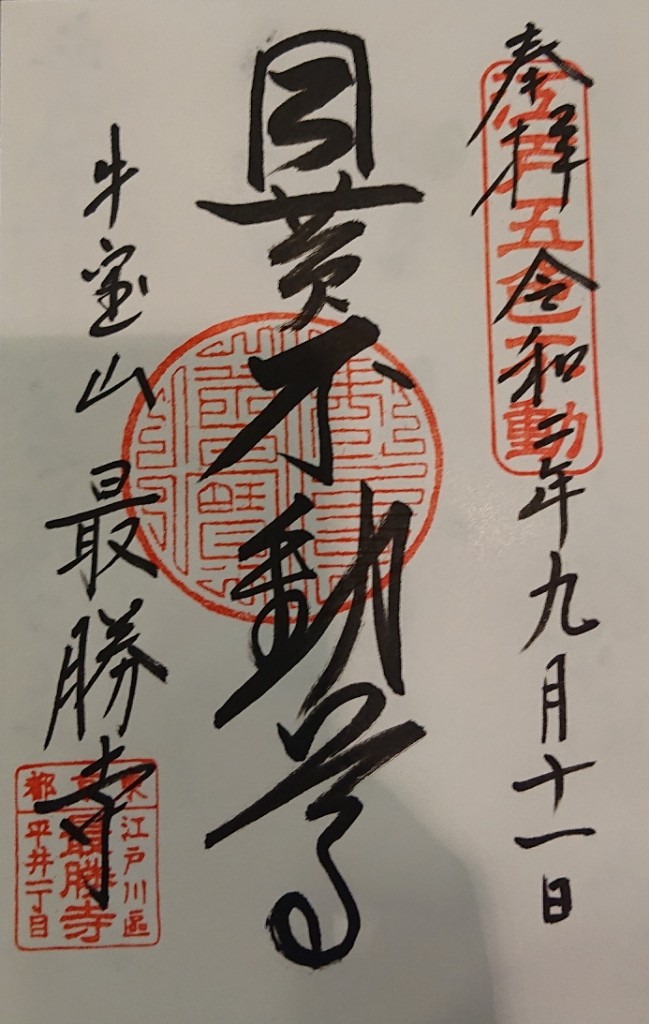 奉拝 令和二年九月十一日
江戸五色不動
目黄不動尊
牛宝山 最勝寺
東京都
江戸川區
最勝寺
平井一丁目